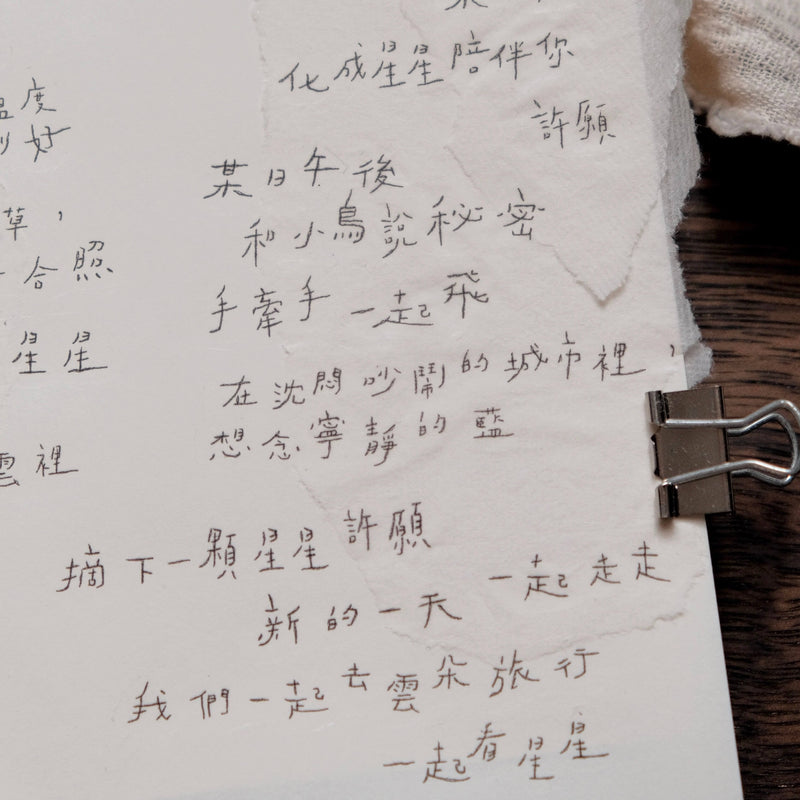 化成星星陪伴你
許願
溫度
好
某日午後
草，
和小鳥說秘密
合照
手牽手 一起飛
星星
在沈悶吵鬧的城市裡，
想念寧靜的藍
雲裡
摘下一顆星星許願
新的一天 一起走走
我們一起去雲朵旅行
一起看星星